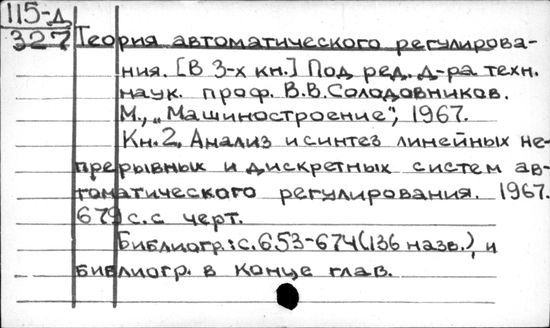 115-д
327
Теория автоматического регулирова-
ния. [В 3-х кн.] Под ред. д-ра техн.
наук. проф. В.В. Солодовников.
М., „Машиностроение", 1967.
Кн. 2. Анализ и синтез линейных не-
прерывных и дискретных систем ав-
томатического регулирования. 1967.
679 с. с черт.
Библиогр.: с. 653-674 (136 назв.), и
библиогр. в конце глав.